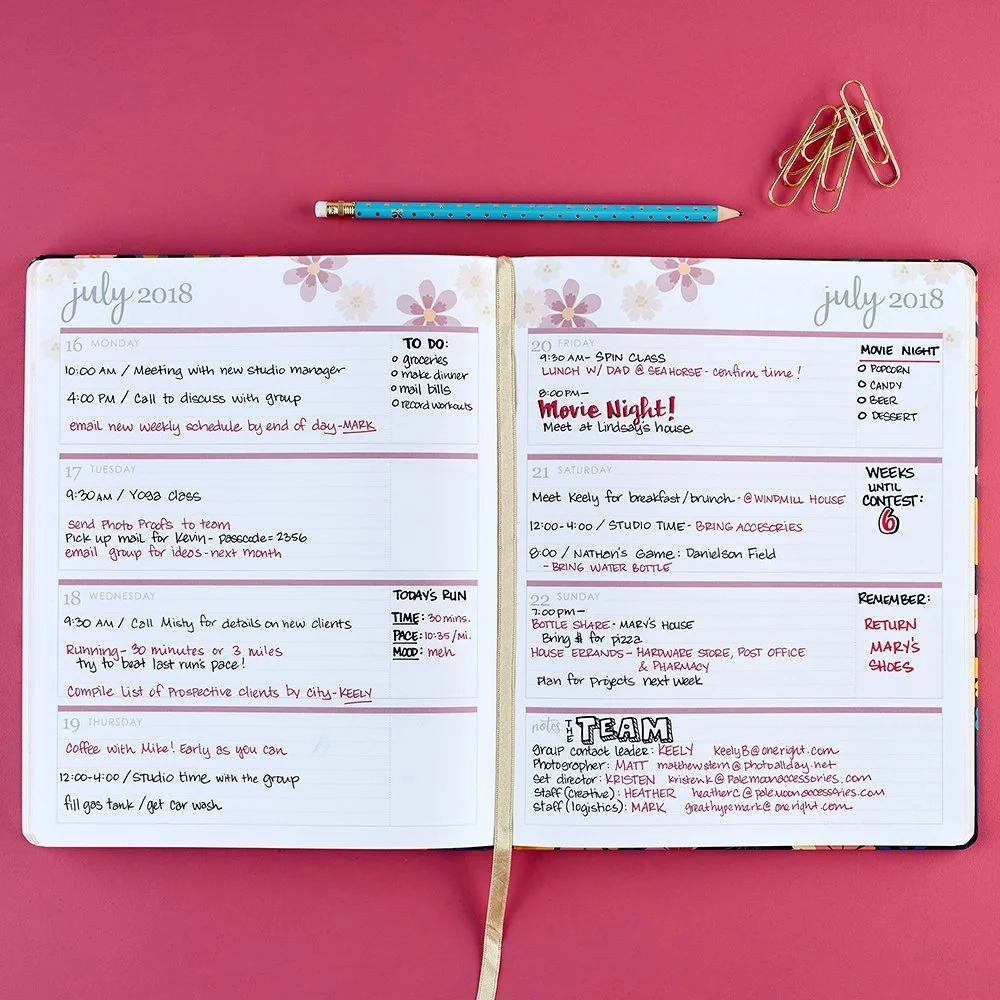 july 2018
16 MONDAY
10:00 AM / Meeting with new studio manager
4:00 PM / Call to discuss with group
email new weekly schedule by end of day-MARK
TO DO:
groceries
make dinner
mail bills
record workouts
17 TUESDAY
9:30 AM / Yoga class
send Photo Proofs to team
Pick up mail for Kevin- passcode= 2356
email group for ideas - next month
18 WEDNESDAY
9:30 AM / Call Misty for details on new clients
Running- 30 minutes or 3 miles
try to beat last run's pace!
Compile List of Prospective clients by city-KEELY
TODAY'S RUN
TIME: 30 mins.
PACE: 10:35/mi.
MOOD: meh
19 THURSDAY
Coffee with Mike! Early as you can
12:00-4:00 / Studio time with the group
fill gas tank / get car wash
july 2018
20 FRIDAY
9:30 AM- SPIN CLASS
LUNCH W/ DAD @ SEAHORSE - confirm time!
8:00 PM-
Movie Night!
Meet at Lindsay's house
MOVIE NIGHT
POPCORN
CANDY
BEER
DESSERT
21 SATURDAY
Meet Keely for breakfast/brunch - @ WINDMILL HOUSE
12:00-4:00 / STUDIO TIME - BRING ACCESORIES
8:00 / NATHAN'S Game: Danielson Field
- BRING WATER BOTTLE
WEEKS
UNTIL
CONTEST:
6
22 SUNDAY
7:00 PM-
BOTTLE SHARE - MARY'S HOUSE
Bring $ for pizza
HOUSE ERRANDS - HARDWARE STORE, POST OFFICE
& PHARMACY
Plan for projects next week
REMEMBER:
RETURN
MARY'S
SHOES
notes THE TEAM
Group contact leader: KEELY keelyB@oneright.com
Photographer: MATT matthewstern@photoallday.net
Set director: KRISTEN kristenk@palemoonaccessories.com
Staff (Creative): HEATHER heatherC@palemoonaccessories.com
Staff (logistics): MARK greathypemark@oneright.com